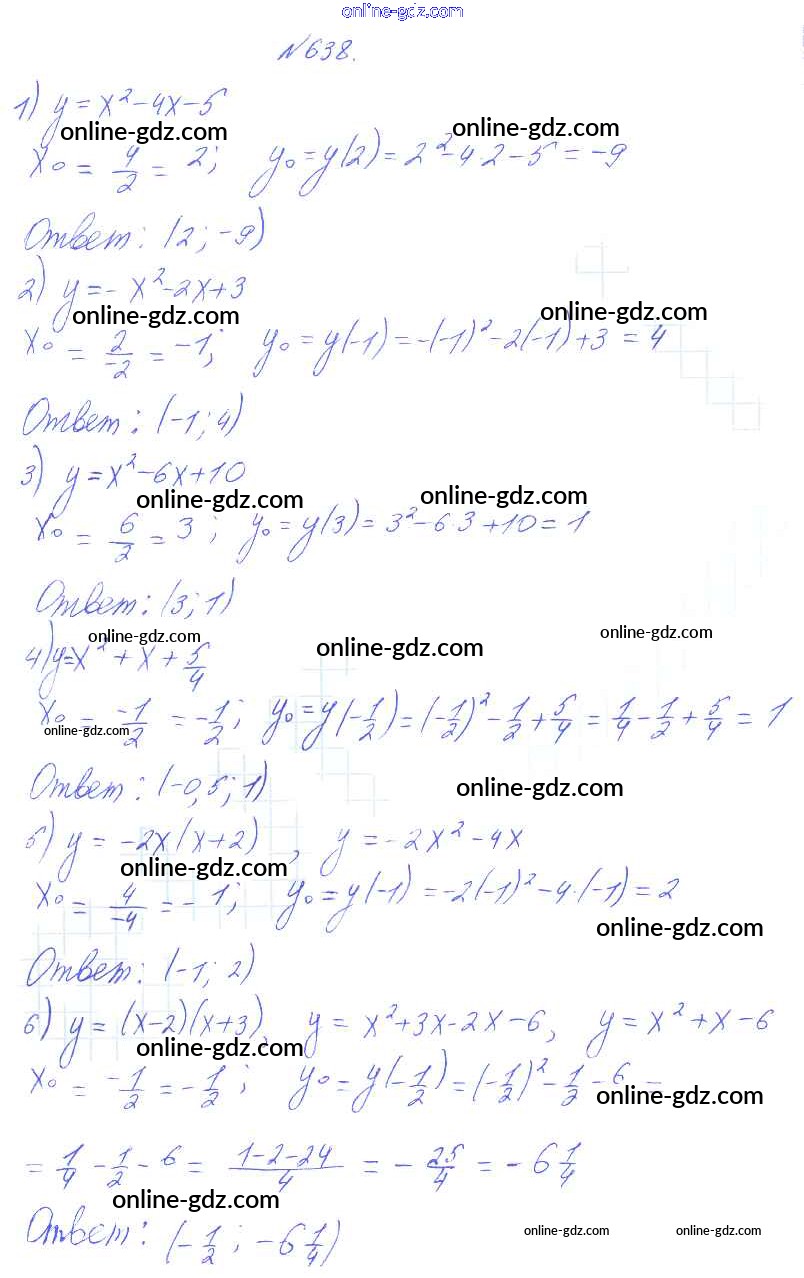 online-gdz.com
№638.
1) y = x² - 4x - 5
online-gdz.com online-gdz.com
x₀ = 4/2 = 2; y₀ = y(2) = 2² - 4·2 - 5 = -9
Ответ: (2; -9)
2) y = -x² - 2x + 3
online-gdz.com online-gdz.com
x₀ = 2/-2 = -1; y₀ = y(-1) = -(-1)² - 2(-1) + 3 = 4
Ответ: (-1; 4)
3) y = x² - 6x + 10
online-gdz.com online-gdz.com
x₀ = 6/2 = 3; y₀ = y(3) = 3² - 6·3 + 10 = 1
Ответ: (3; 1)
online-gdz.com online-gdz.com online-gdz.com
4) y = x² + x + 5/4
x₀ = -1/2 = -1/2; y₀ = y(-1/2) = (-1/2)² - 1/2 + 5/4 = 1/4 - 1/2 + 5/4 = 1
online-gdz.com
Ответ: (-0,5; 1)
online-gdz.com
5) y = -2x(x+2), y = -2x² - 4x
online-gdz.com
x₀ = 4/-4 = -1; y₀ = y(-1) = -2(-1)² - 4·(-1) = 2
online-gdz.com
Ответ: (-1; 2)
6) y = (x-2)(x+3), y = x² + 3x - 2x - 6, y = x² + x - 6
online-gdz.com
x₀ = -1/2 = -1/2; y₀ = y(-1/2) = (-1/2)² - 1/2 - 6 =
online-gdz.com
= 1/4 - 1/2 - 6 = (1-2-24)/4 = -25/4 = -6 1/4
online-gdz.com
Ответ: (-1/2; -6 1/4)
online-gdz.com online-gdz.com